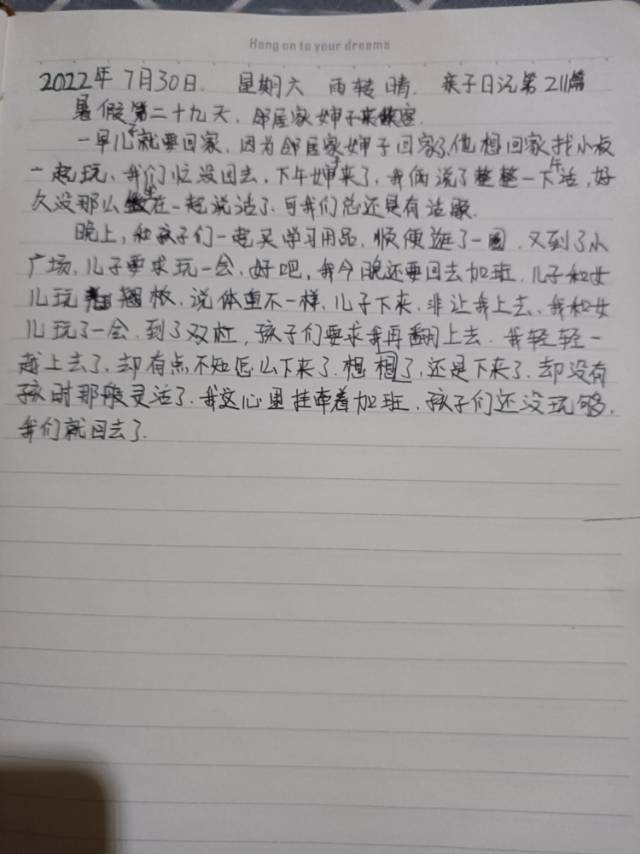 Hang on to your dreams
2022年7月30日. 星期六 雨转晴. 亲子日记第211篇
暑假第二十九天, 邻居家婶子来做客.
一早儿子就要回家, 因为邻居家婶子回家了, 他想回家找小叔
一起玩, 我们忙没回去, 下午婶子来了, 我俩说了整整一下午话, 好
久没那么坐在一起说话了. 可我们总还是有话聊.
晚上, 和孩子们一起买学习用品, 顺便逛了一圈, 又到了水
广场, 儿子要求玩一会, 好吧, 我今晚还要回去加班, 儿子和女
儿玩翘板, 说体重不一样, 儿子下来, 非让我上去, 我和女
儿玩了一会, 到了双杠, 孩子们要求我再翻上去. 我轻轻一
越上去了, 却有点不知怎么下来了. 想想了, 还是下来了. 却没有
孩时那般灵活了. 我这心里挂牵着加班, 孩子们还没玩够,
我们就回去了.